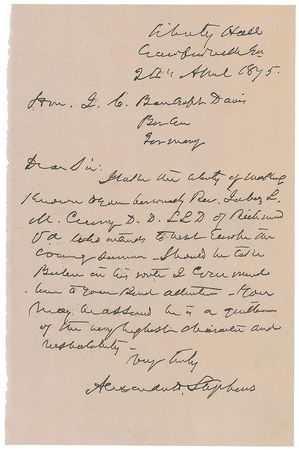 Liberty Hall
Crawfordville Ga
2 April 1875.
Hon. J. C. Bancroft Davis
Berlin
Germany
Dear Sir:
I take the liberty of making
known to you Rev. Jabez L.
M. Curry D. D. L L D of Richmond
Va who intends to visit Europe the
coming summer - Should he take
Berlin in his route I commend
him to your kind attention - You
may be assured he is a gentleman
of the very highest character and
respectability -
Very truly
Alexander H. Stephens